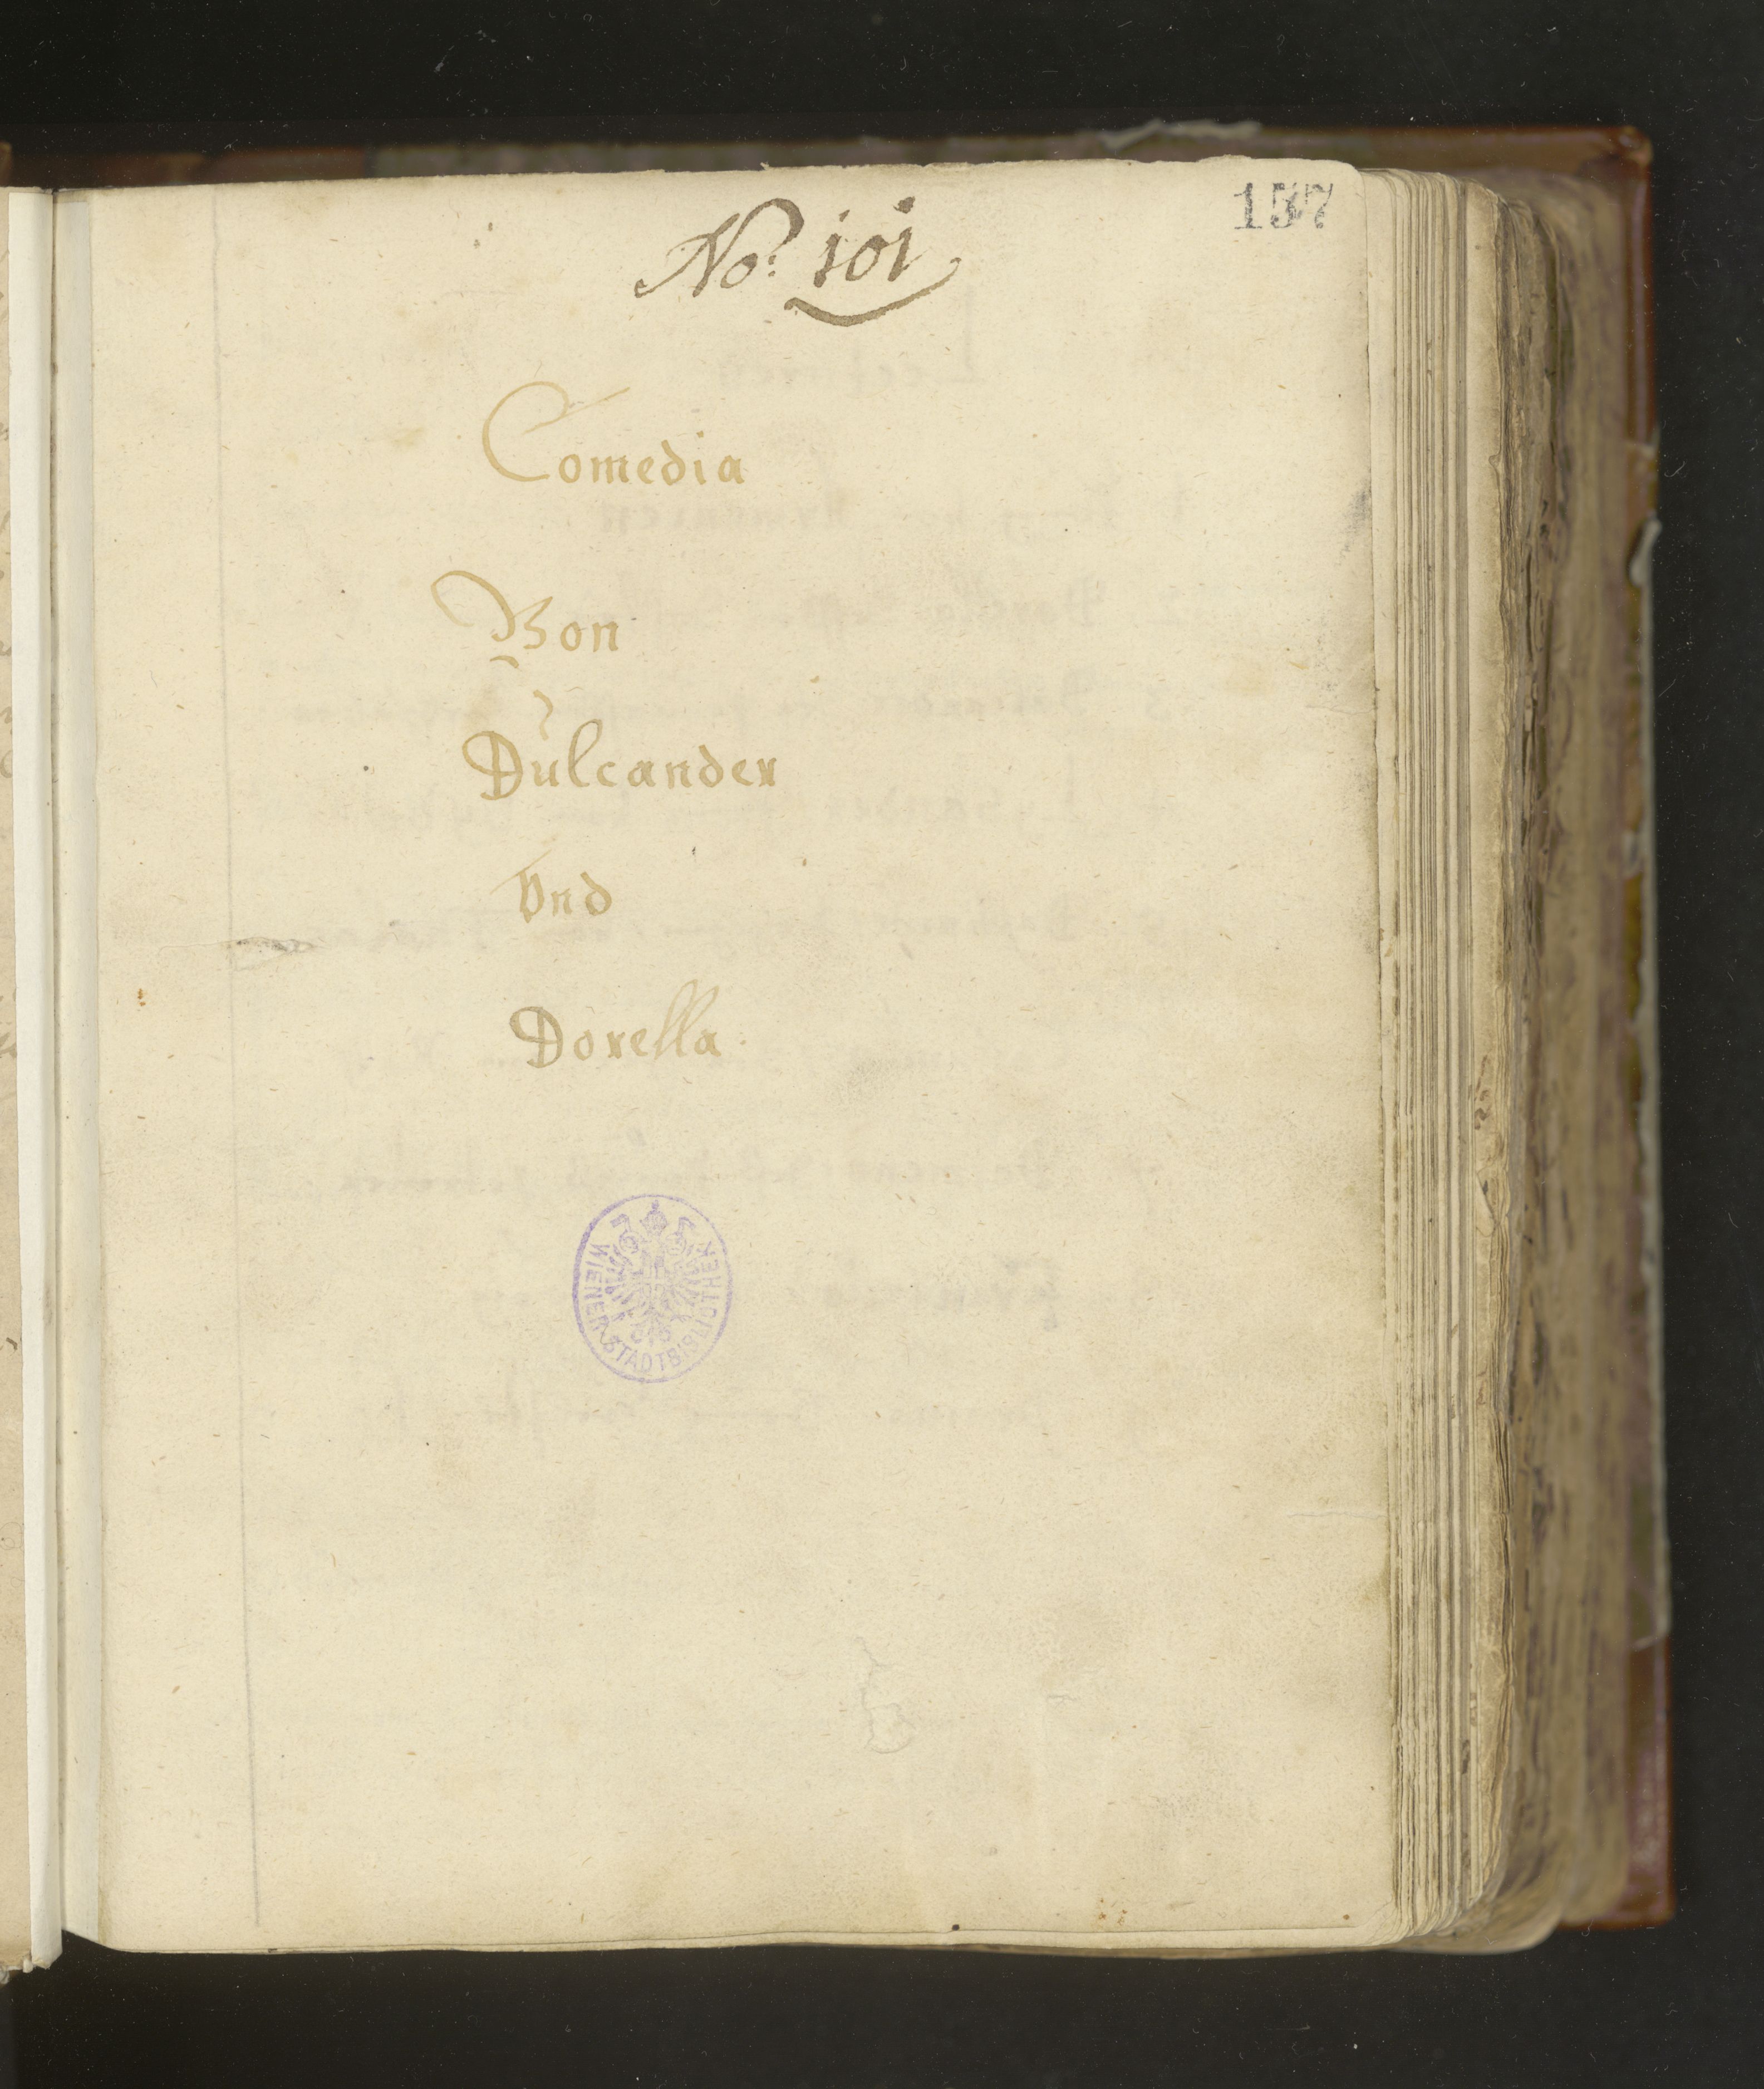 157
No. 101
Comedia
Von
Dulcander
Vnd
Dorella
WIENER STADTBIBLIOTHEK